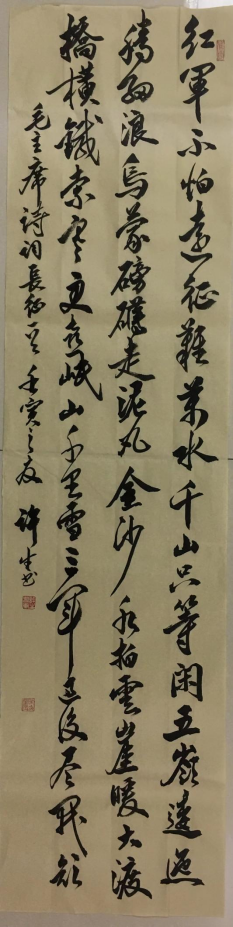 红軍不怕遠征難萬水千山只等闲五嶺逶迤
騰细浪烏蒙磅礴走泥丸金沙水拍雲崖暖大渡
橋横鐵索寒更喜岷山千里雪三軍过後尽開颜
毛主席詩词長征一首壬寅之夏許书